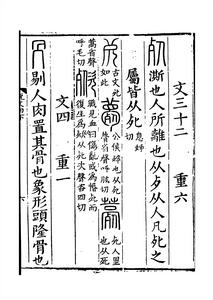 文三十二 重六
澌也人所離也从歺从人凡死之
屬皆从死 息姊切
古文死如此 公侯𣨛也从死瞢省聲呼肱切 死人里也从死
蒿省聲呼毛切 戰見血曰傷亂或爲惽死而復生爲𣩠从死次聲咨四切
文四 重一
剔人肉置其骨也象形頭隆骨也